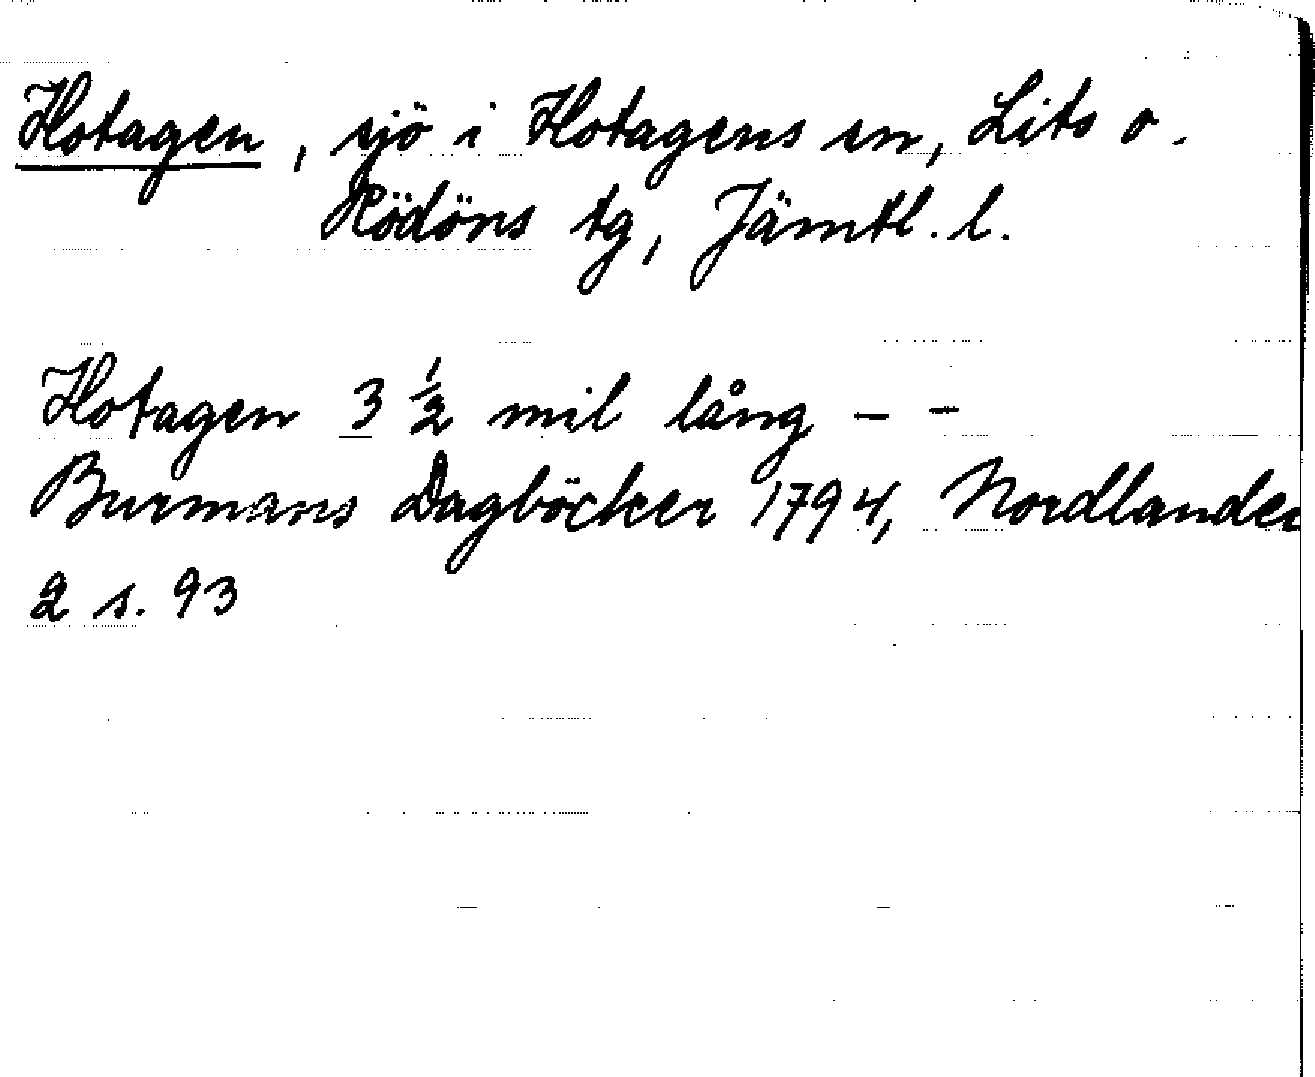 Hotagen, sjö i Hotagens sn, Lits o.
Rödöns tg, Jämtl. l.
Hotagen 3 1/2 mil lång - -
Burmans Dagböcker 1794, Nordlander
2 s. 93